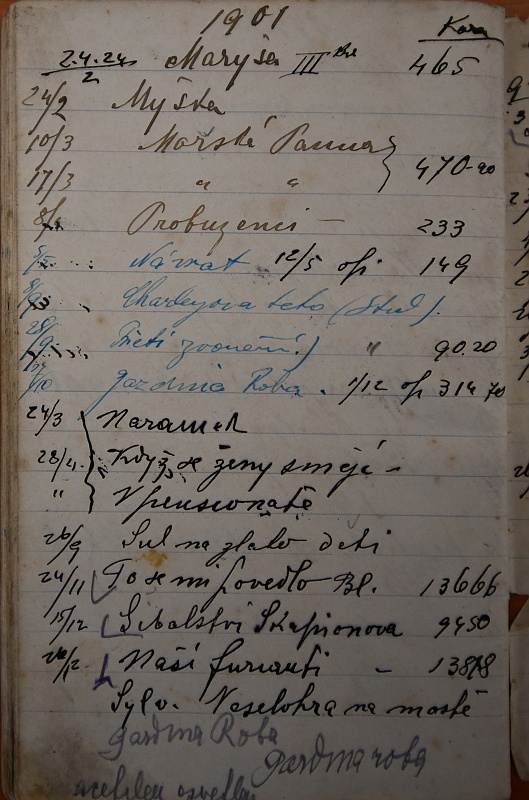 1901
Kora
2.4.24 Maryša III 465
2
24/2 Myška
10/3 Morská Panna
17/3 " " 470-20
Probuzenci — 233
Návrat 12/5 opi 149
Charleyova teta (Stud).
28/9 Třetí zvonění!) " 90.20
/10 Gazdina Roba . 1/12 op 314 70
24/3 Naramek
28/4 Když se ženy smějí -
" V pensionatě
26/9 Sul nad zlato deti
24/11 To se mi povedlo Bl. 136 66
15/12 Šibalství Skapinova 94 50
26/12 Naši furianti - 138
Sylv. Veselohra na mostě
Gazdina Roba
Gazdina roba